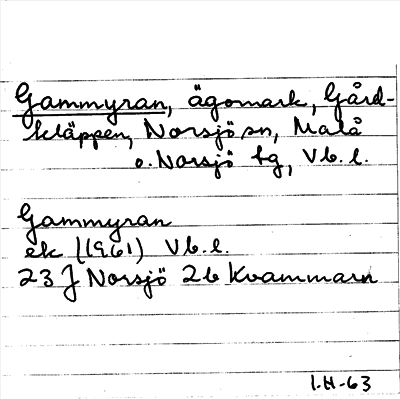 Gammyran, ägomark, Gård-
kläppen, Norsjö sn, Malå
o. Norsjö tg, Vb. l.
Gammyran
ek (1961) Vb. l.
23 J Norsjö 2b Kvammarn
I.H-63